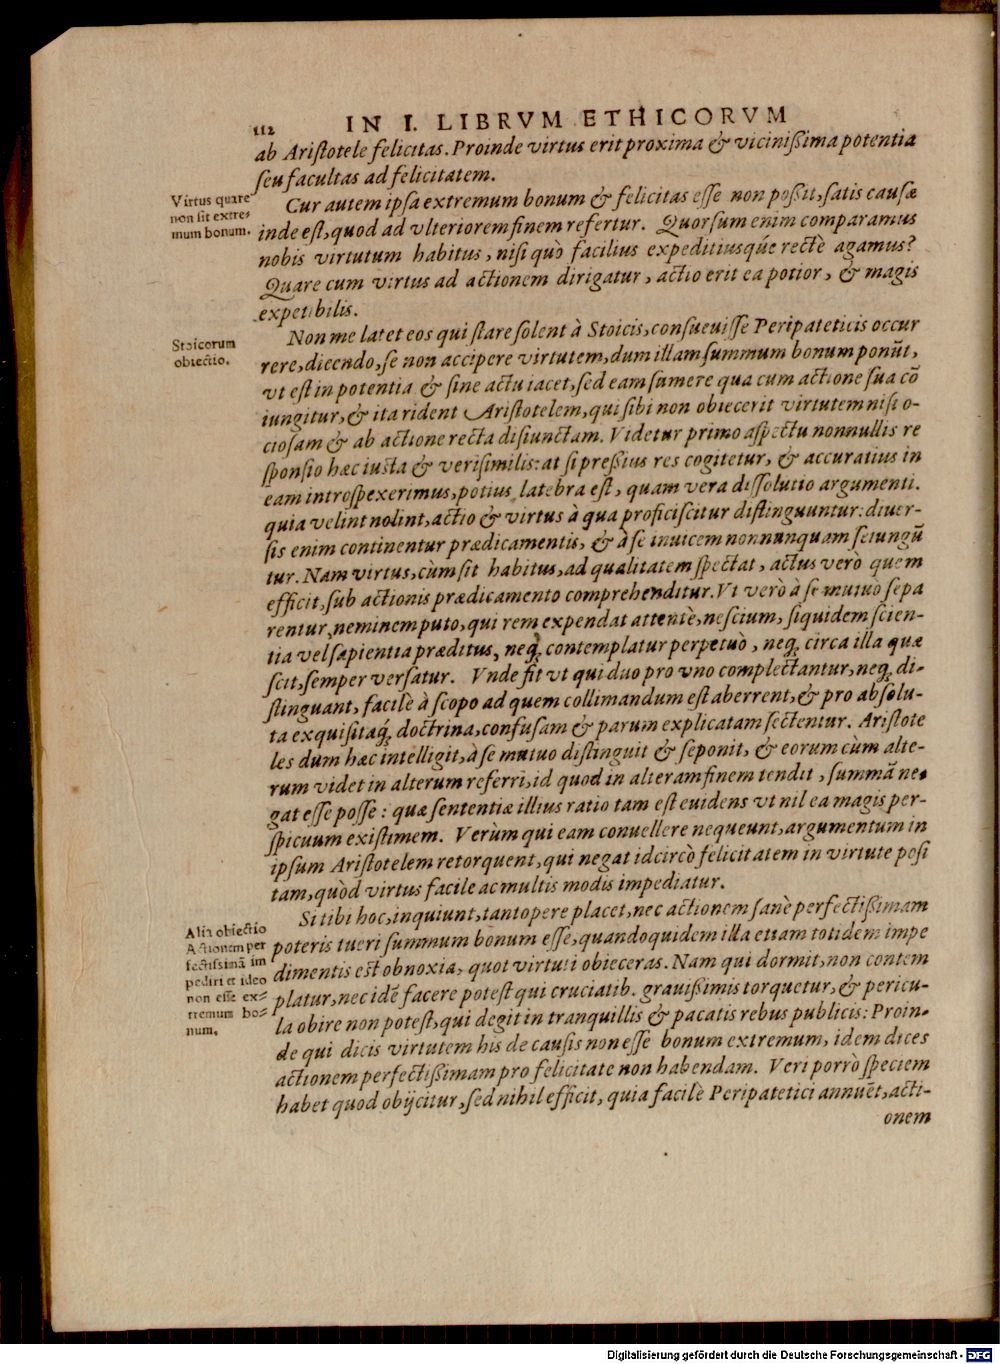 112
IN I. LIBRVM ETHICORVM
ab Aristotele felicitas. Proinde virtus erit proxima & vicinißima potentia
seu facultas ad felicitatem.
Virtus quare
non sit extre-
mum bonum.
Cur autem ipsa extremum bonum & felicitas esse non poßit, satis causæ
inde est, quod ad vlteriorem finem refertur. Quorsum enim comparamus
nobis virtutum habitus, nisi quò facilius expeditiusqúe rectè agamus?
Quare cum virtus ad actionem dirigatur, actio erit ea potior, & magis
expetibilis.
Stoicorum
obiectio.
Non me latet eos qui stare solent à Stoicis, consueuisse Peripateticis occur
rere, dicendo, se non accipere virtutem, dum illam summum bonum ponũt,
vt est in potentia & sine actu iacet, sed eam sumere qua cum actione sua cō
iungitur, & ita rident Aristotelem, qui sibi non obiecerit virtutem nisi o-
ciosam & ab actione recta disiunctam. Videtur primo aspectu nonnullis re
sponsio hæc iusta & verisimilis: at si preßius res cogitetur, & accuratius in
eam introspexerimus, potius latebra est, quam vera dissolutio argumenti.
quia velint nolint, actio & virtus à qua proficiscitur distinguuntur: diuer-
sis enim continentur prædicamentis, & à se inuicem nonnunquam seiungũ
tur. Nam virtus, cùm sit habitus, ad qualitatem spectat, actus verò quem
efficit, sub actionis prædicamento comprehenditur. Vt verò à se mutuo sepa
rentur, neminem puto, qui rem expendat attentè, nescium, siquidem scien-
tia vel sapientia præditus, neq; contemplatur perpetuò, neq; circa illa quæ
scit, semper versatur. Vnde fit vt qui duo pro vno complectantur, neq; di-
stinguant, facilè à scopo ad quem collimandum est aberrent, & pro absolu-
ta exquisitaq́; doctrina, confusam & parum explicatam sectentur. Aristote
les dum hæc intelligit, à se mutuo distinguit & seponit, & eorum cùm alte-
rum videt in alterum referri, id quod in alteram finem tendit, summã ne-
gat esse posse: quæ sententiæ illius ratio tam est euidens vt nil ea magis per-
spicuum existimem. Verùm qui eam conuellere nequeunt, argumentum in
ipsum Aristotelem retorquent, qui negat idcircò felicitatem in virtute posi
tam, quòd virtus facile ac multis modis impediatur.
Alia obiectio
Actionem per
fectissimã im
pediri et ideo
non esse ex-
tremum bo-
num.
Si tibi hoc, inquiunt, tantopere placet, nec actionem sanè perfectißimam
poteris tueri summum bonum esse, quandoquidem illa etiam totidem impe
dimentis est obnoxia, quot virtuti obieceras. Nam qui dormit, non contem
platur, nec idẽ facere potest qui cruciatib. grauißimis torquetur, & pericu-
la obire non potest, qui degit in tranquillis & pacatis rebus publicis: Proin-
de qui dicis virtutem his de causis non esse bonum extremum, idem dices
actionem perfectißimam pro felicitate non habendam. Veri porrò speciem
habet quod obijcitur, sed nihil efficit, quia facilè Peripatetici annuẽt, acti-
onem
Digitalisierung gefördert durch die Deutsche Forschungsgemeinschaft - DFG